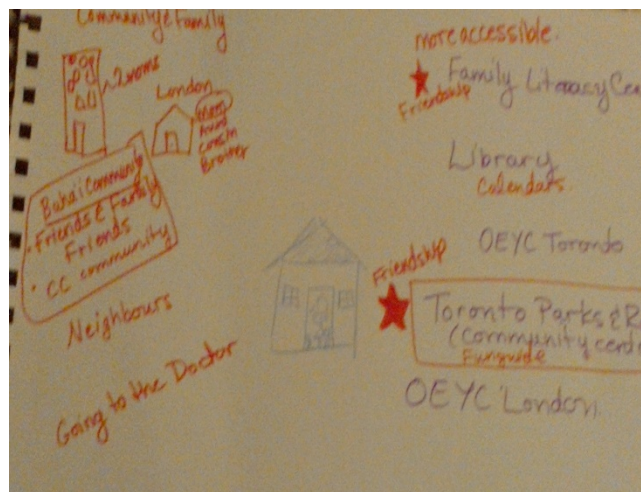 Community & Family
2 rooms
London
Mom
Aunt
Cousin
Brother
Baha'i Community
• Friends & Family
Friends
• CC community
Neighbours
Going to the Doctor
more accessible.
Family Literacy Cen
Friendship
Library
Calendars.
OEYC Toronto
Friendship
Toronto Parks & R
(Community cent
Funguide
OEYC London